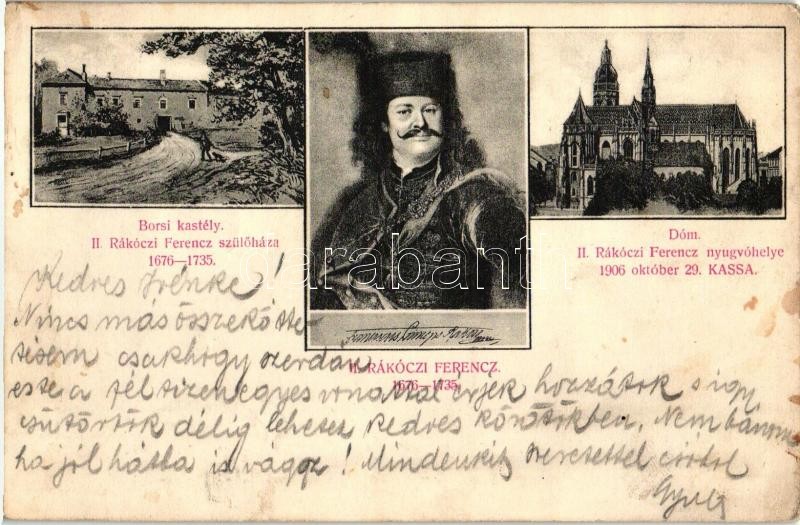 Borsi kastély.
II. Rákóczi Ferencz szülőháza
1676—1735.
II. RÁKÓCZI FERENCZ.
1676—1735.
Dóm.
II. Rákóczi Ferencz nyugvóhelye
1906 október 29. KASSA.
darabanth.com
Kedves Irénke!
Nincs más összekötte-
tésem csakhogy szerdán
este a fél tizenegyes vonattal érjek hozzátok s így
csütörtök délig lehetek kedves körötökben. Nem bánom
ha jól hátba is vágsz! Mindenkit szeretettel csókol
Gyula